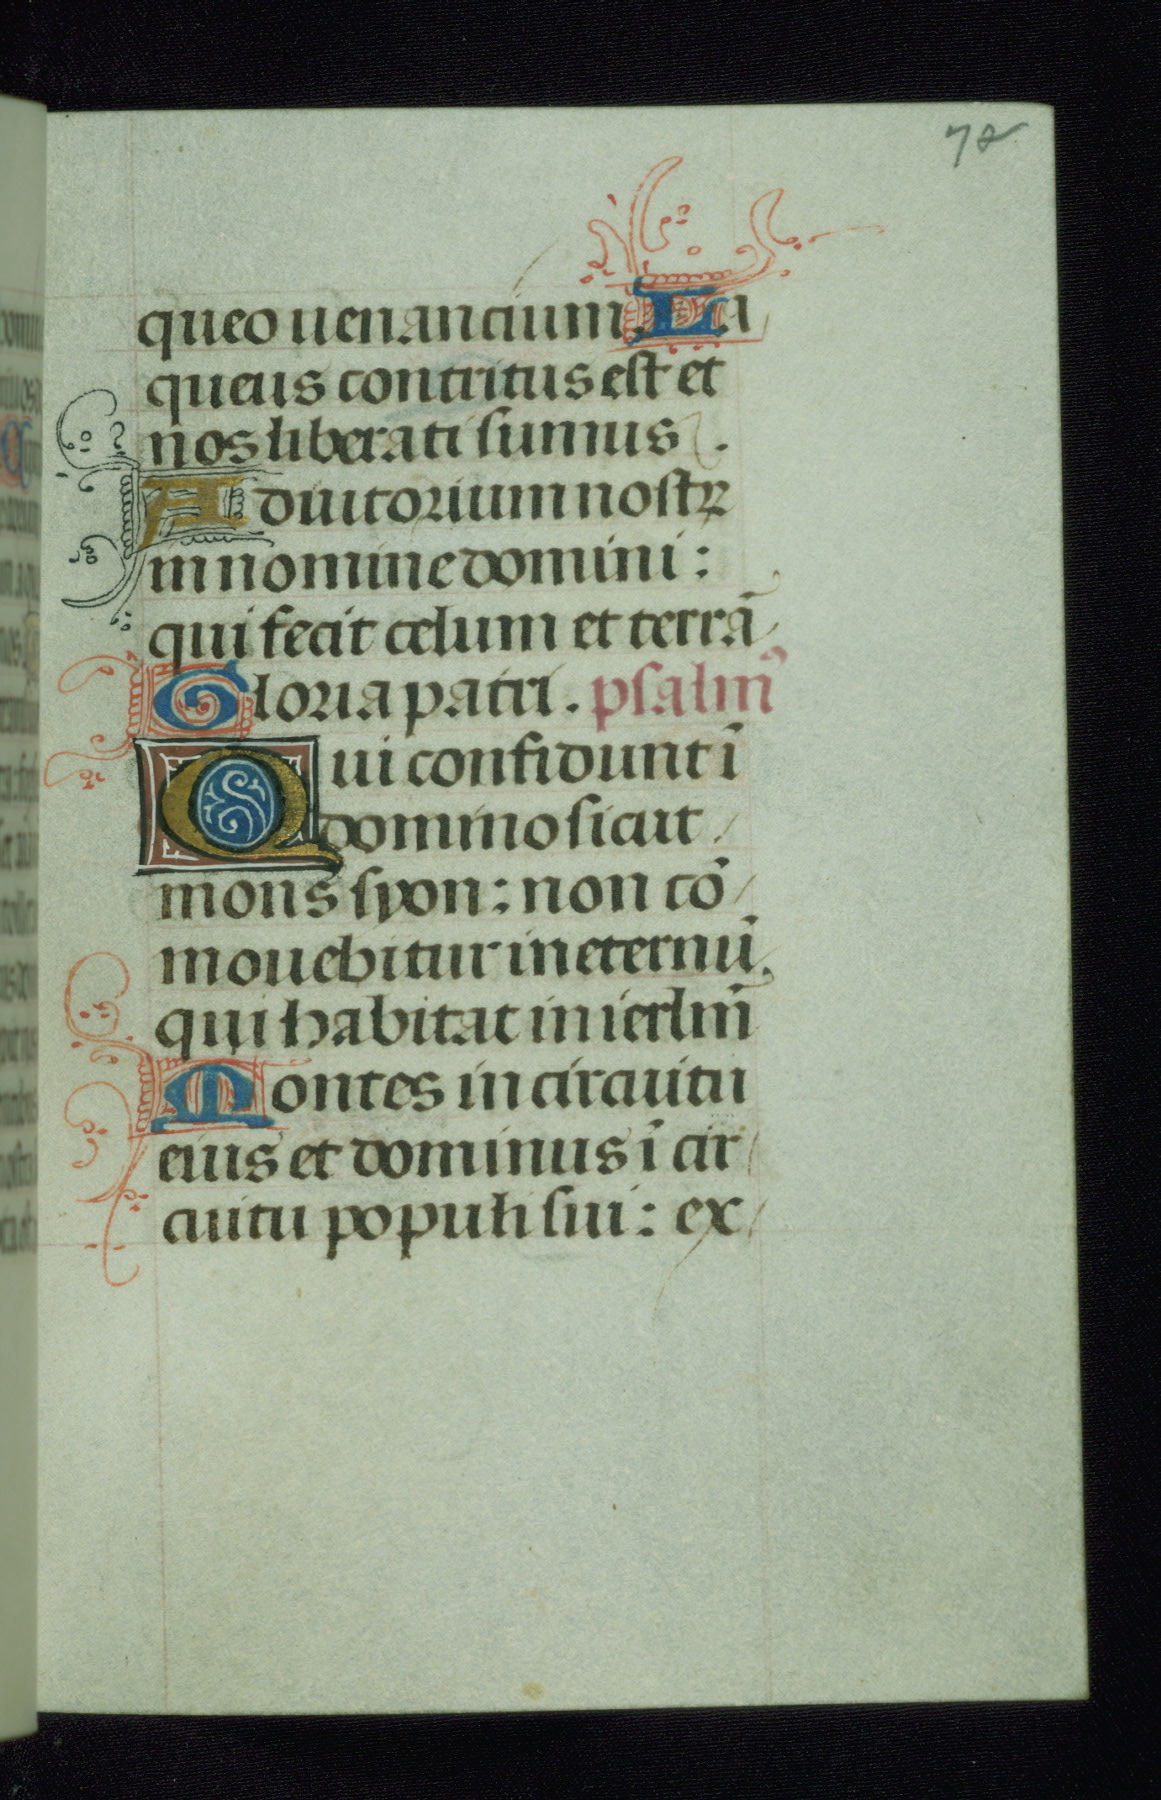 72
queo uenancium. La
queus contritus est et
nos liberati sumus.
Adiutorium nostrꝝ
in nomine domini:
qui fecit celum et terrā
Gloria patri. psalm̄
Qui confidunt ī
domino sicut
mons syon: non cō
mouebitur in eternū,
qui habitat in ierlm̄
Montes in circuitu
eius et dominus ī cir
cuitu populi sui: ex